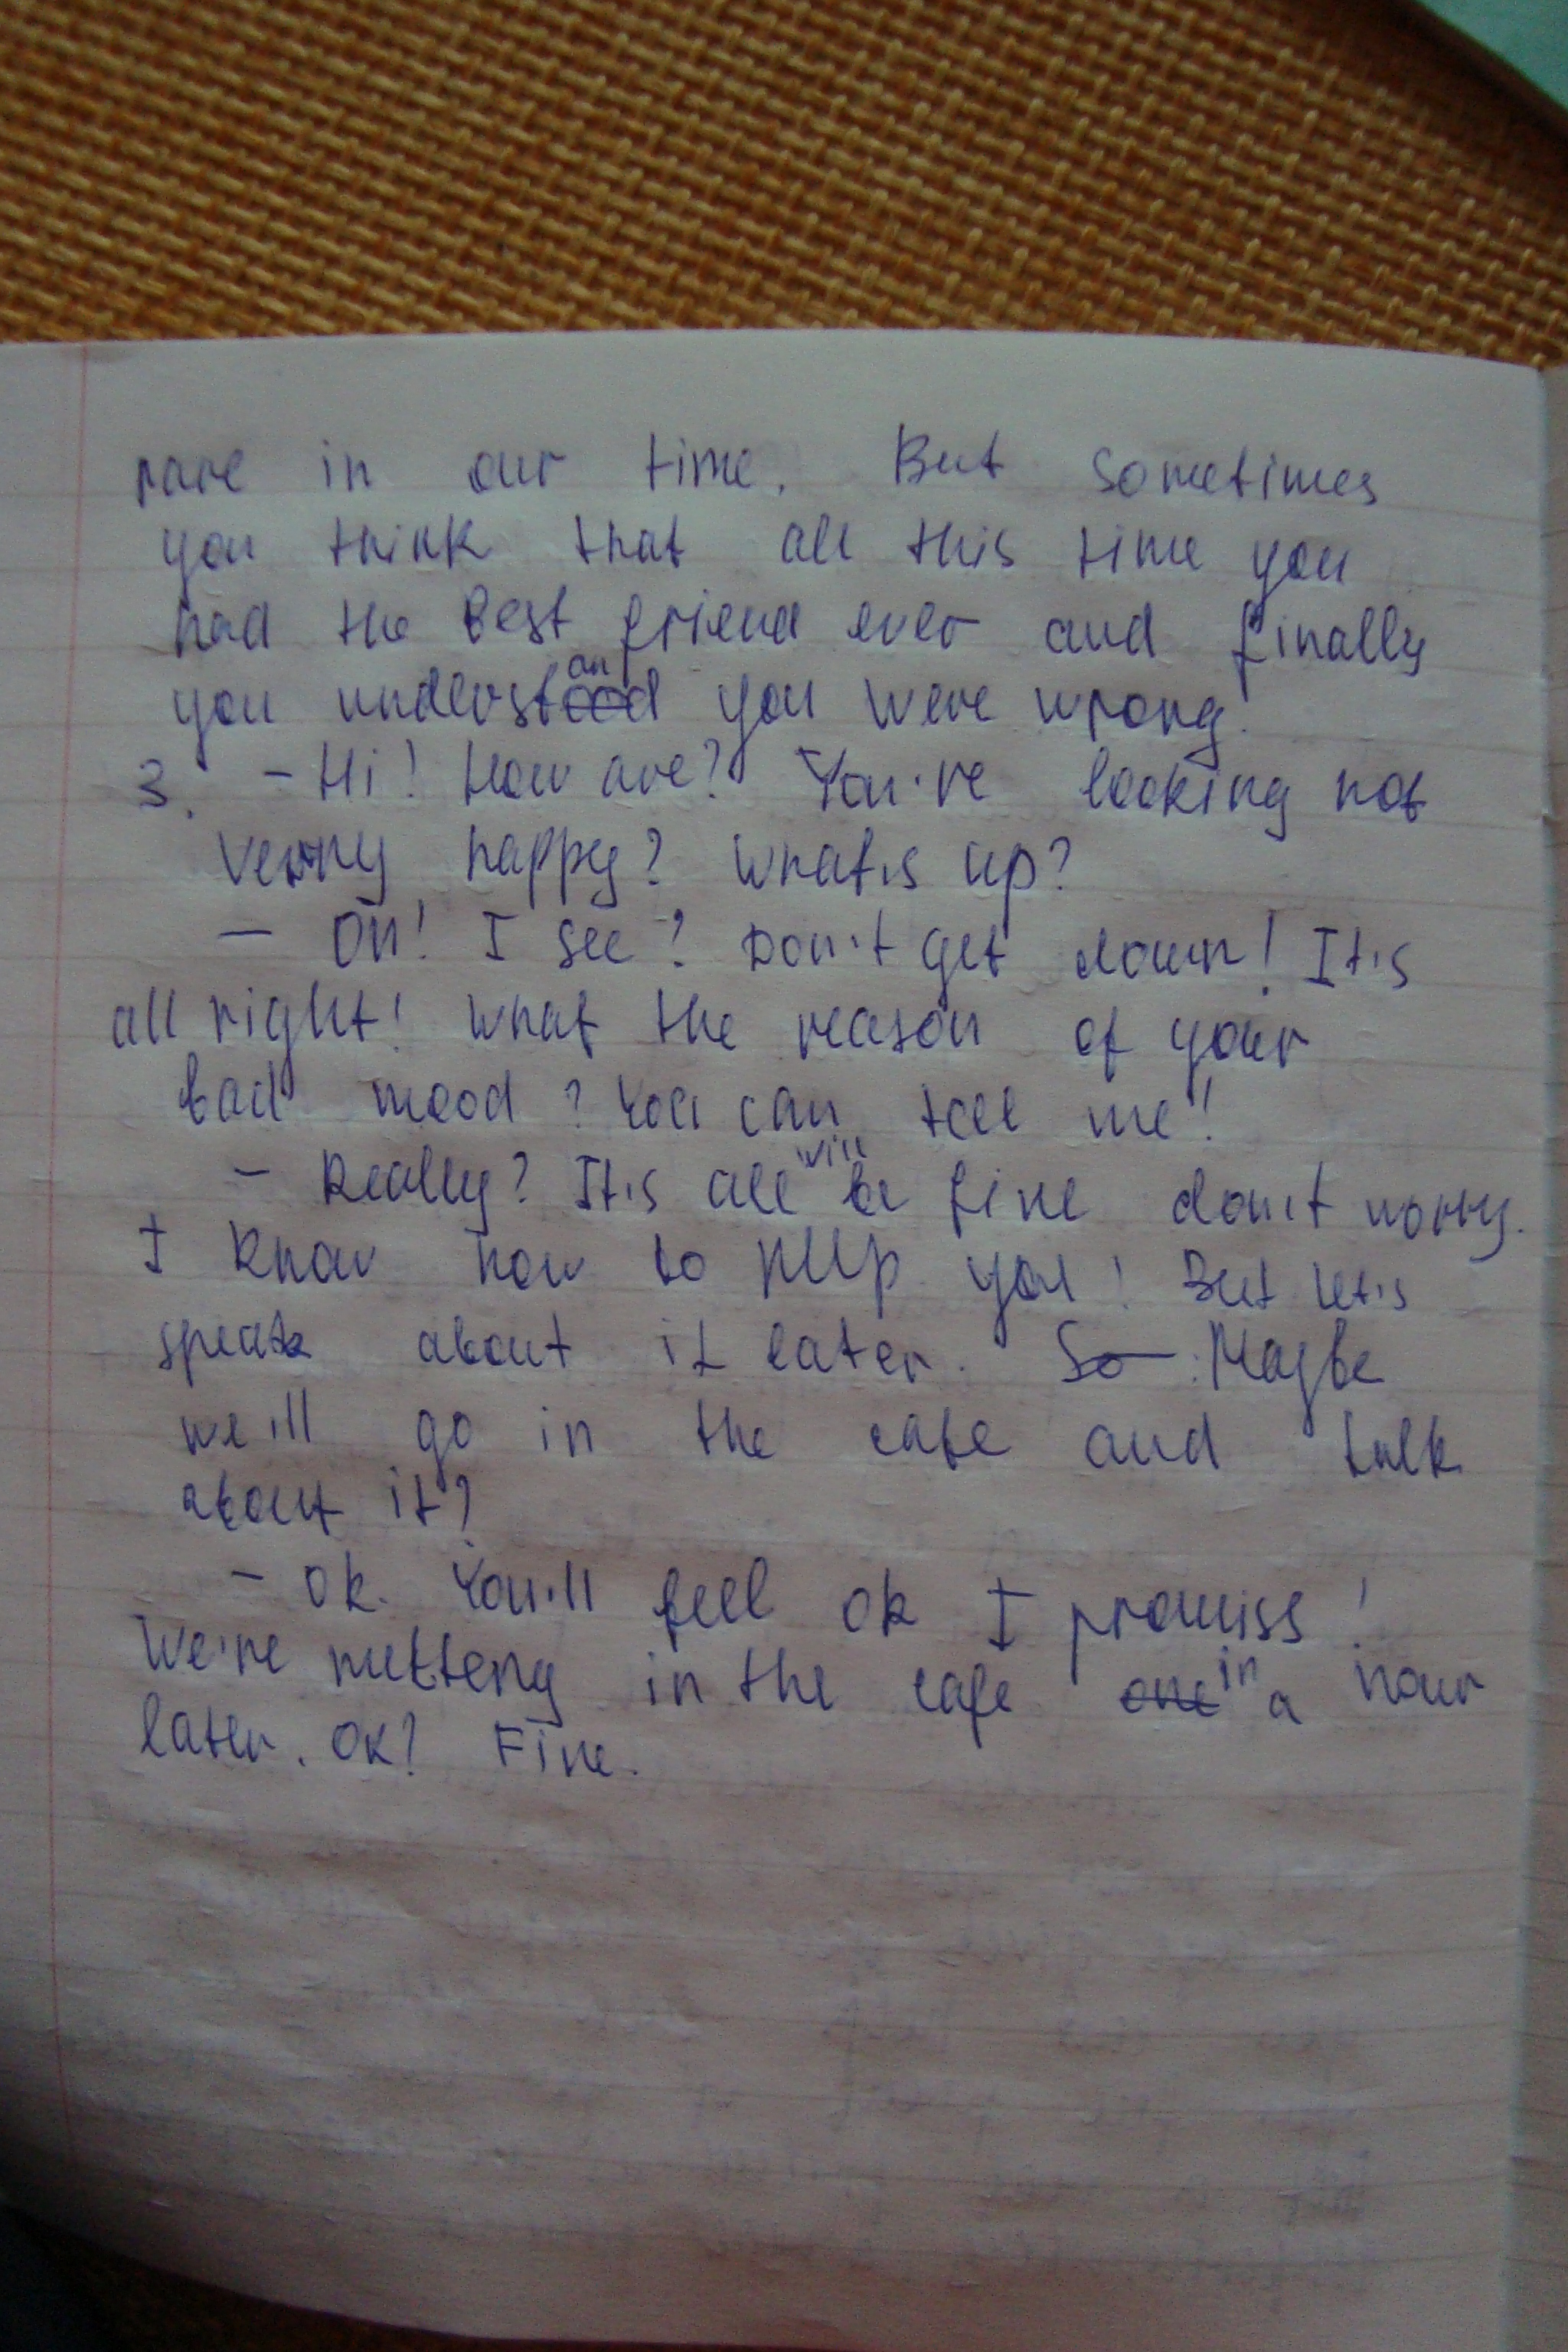 rare in our time. But sometimes
you think that all this time you
had the best friend ever and finally
you understand you were wrong.
3. - Hi! How are? You're looking not
verry happy? What's up?
- Oh! I see? Don't get down! It's
all right! What the reason of your
bad mood? You can tell me!
- Really? It's all will be fine don't worry.
I know how to help you! But let's
speak about it later. So Maybe
we'll go in the cafe and talk
about it?
- Ok. You'll feel ok I promiss!
We're metteng in the cafe one in a hour
later. Ok? Fine.